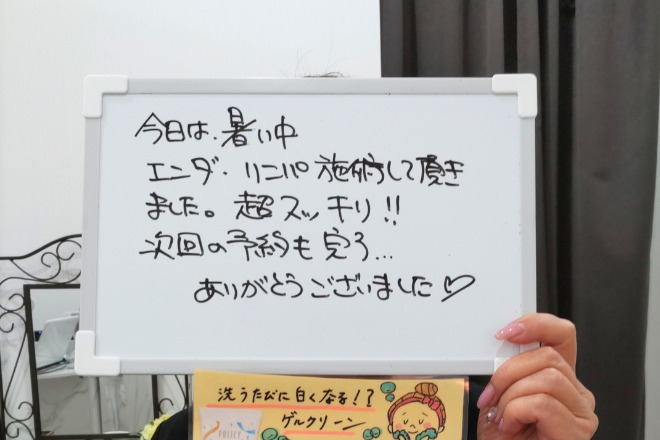 今日は、暑い中
エンダ・リンパ施術して頂き
ました。超スッキリ!!
次回の予約も完了...
ありがとうございました♡
洗うたびに白くなる!?
ゲルクリーン
POLICY